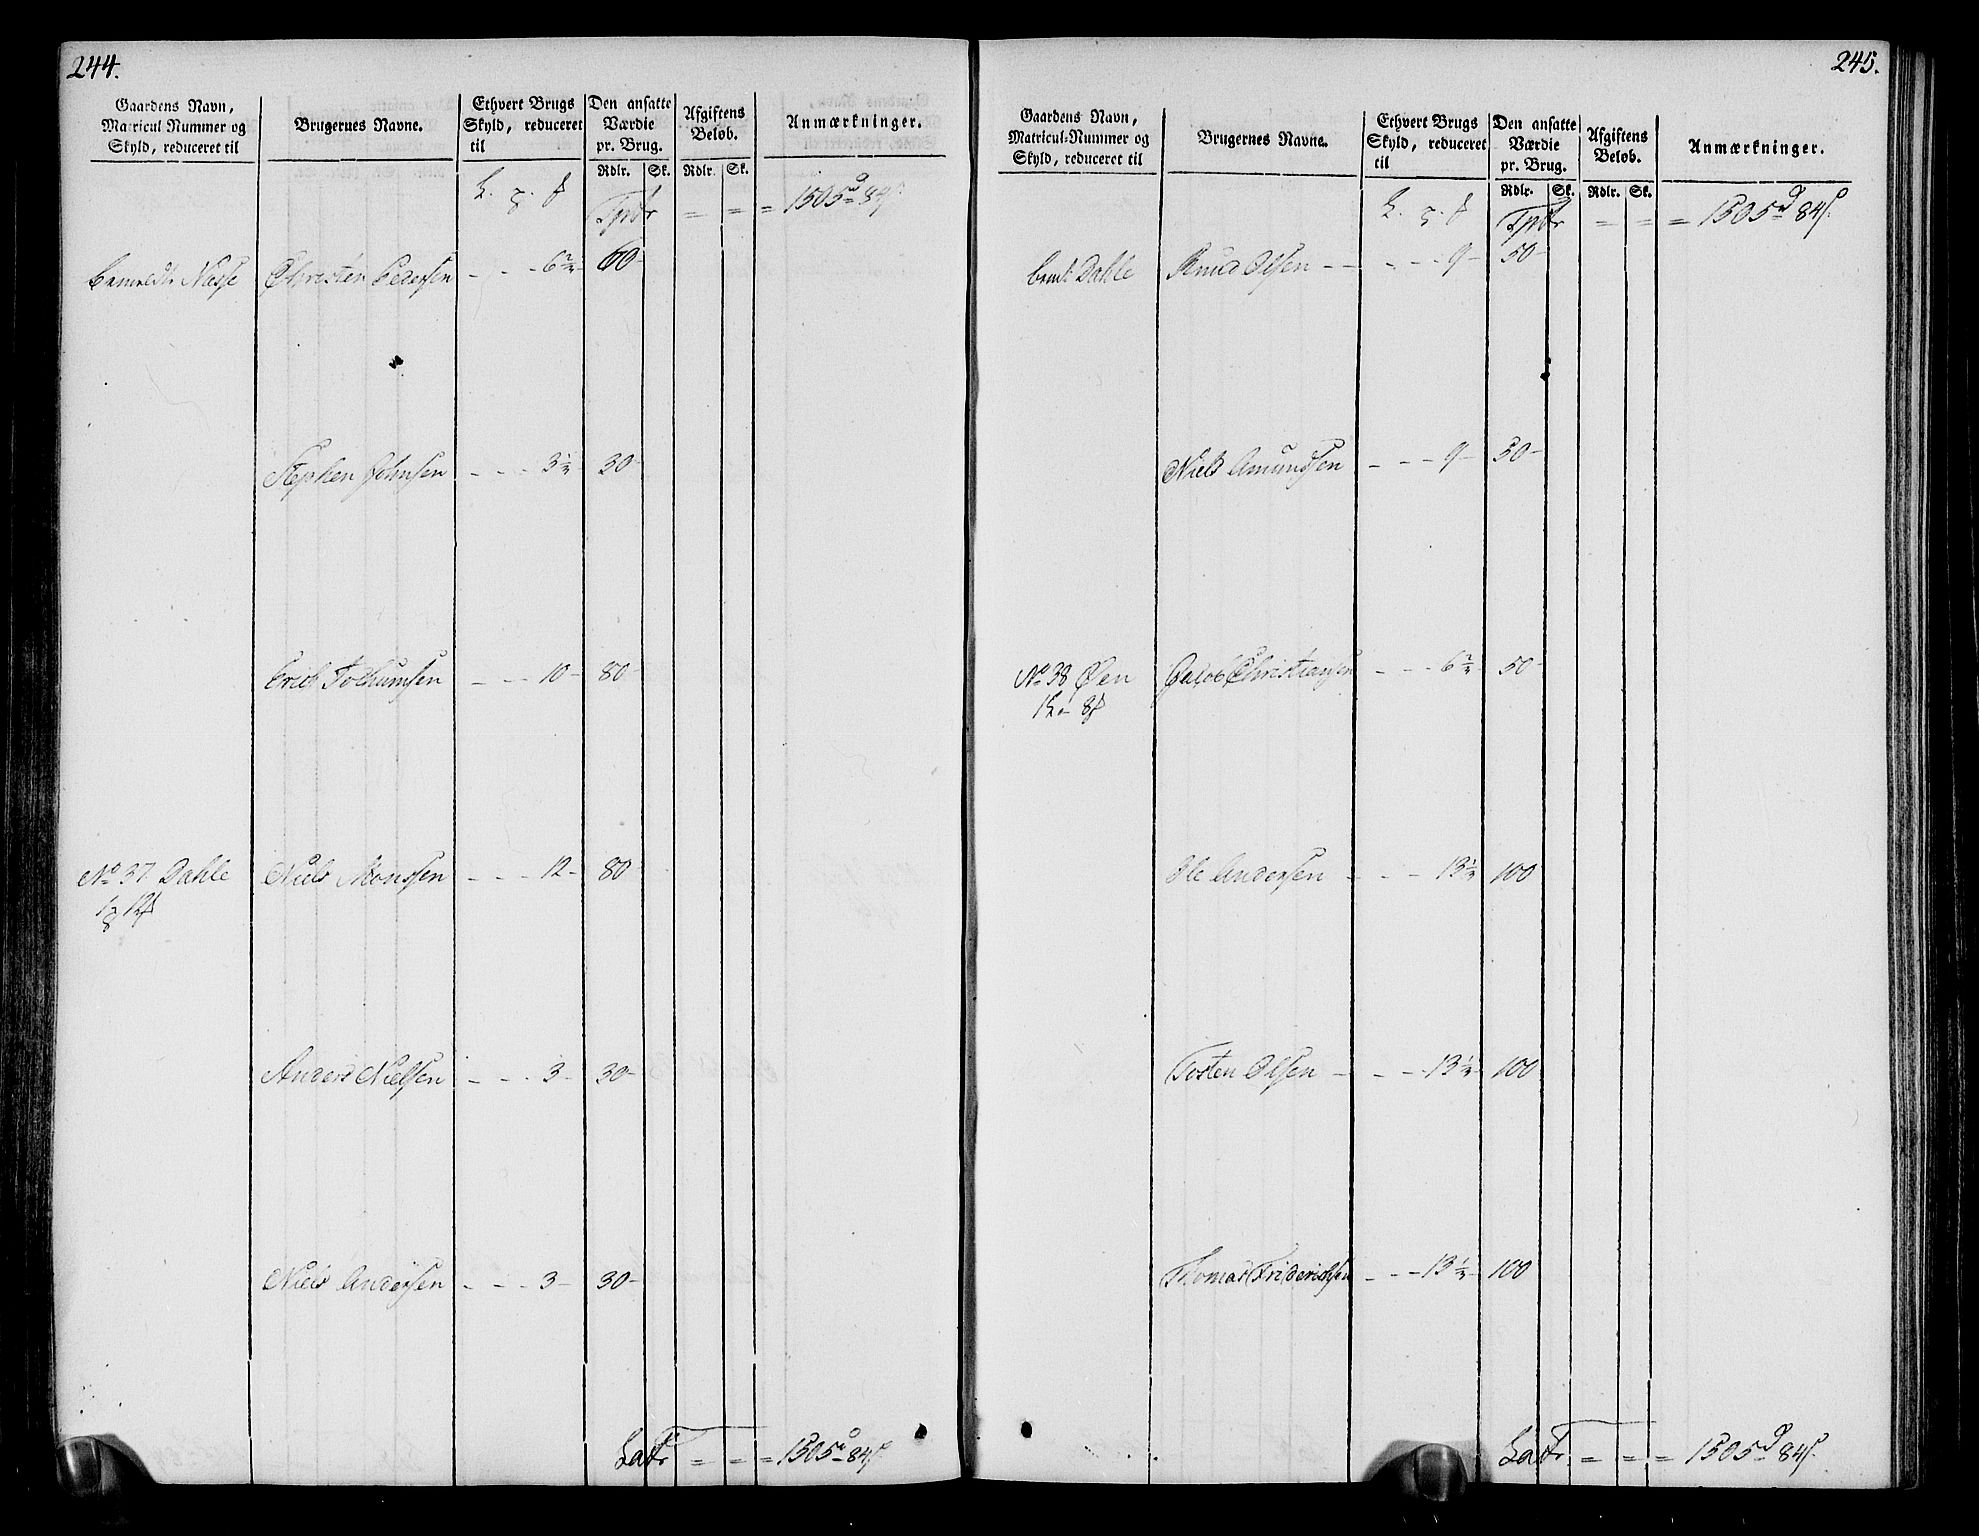 244.
Gaardens Navn,
Matricul Nummer og
Skyld, reduceret til
Brugernes Navne.
Ethvert Brugs
Skyld, reduceret
til
Den ansatte
Værdie
pr. Brug.
Rdlr. Sk.
Afgiftens
Beløb.
Rdlr. Sk.
Anmærkninger.
Tpor = = = 1505 84
Næsse Christen Pedersen - - - 6 60 -
Stephen Johnsen - - - 3 ½ 30 -
Erich Jochumsen - - - 10 - 80
No 37 Dahle Niels Monssen - - - 12 - 80
Anders Nielsen - - - 3 - 30 -
Niels Andersen - - - 3 - 30 -
Latr = = = 1505 84
245.
Gaardens Navn,
Matricul-Nummer og
Skyld, reduceret til
Brugernes Navne.
Ethvert Brugs
Skyld, reduceret
til
Den ansatte
Værdie
pr. Brug.
Rdlr. Sk.
Afgiftens
Beløb.
Rdlr. Sk.
Anmærkninger.
Tpor = = = 1505 84
Dahle Knud Olsen - - - - 9 - 50 -
Niels Amundsen - - - 9 - 50 -
No 38 Øen Jacob Christiansen - - - 6 50 -
Ole Andersen - - - 13 ½ 100
Tosten Olsen - - - 13 ½ 100
Thomas Friderichsen - - - 13 ½ 100
Latr = = = 1505 84